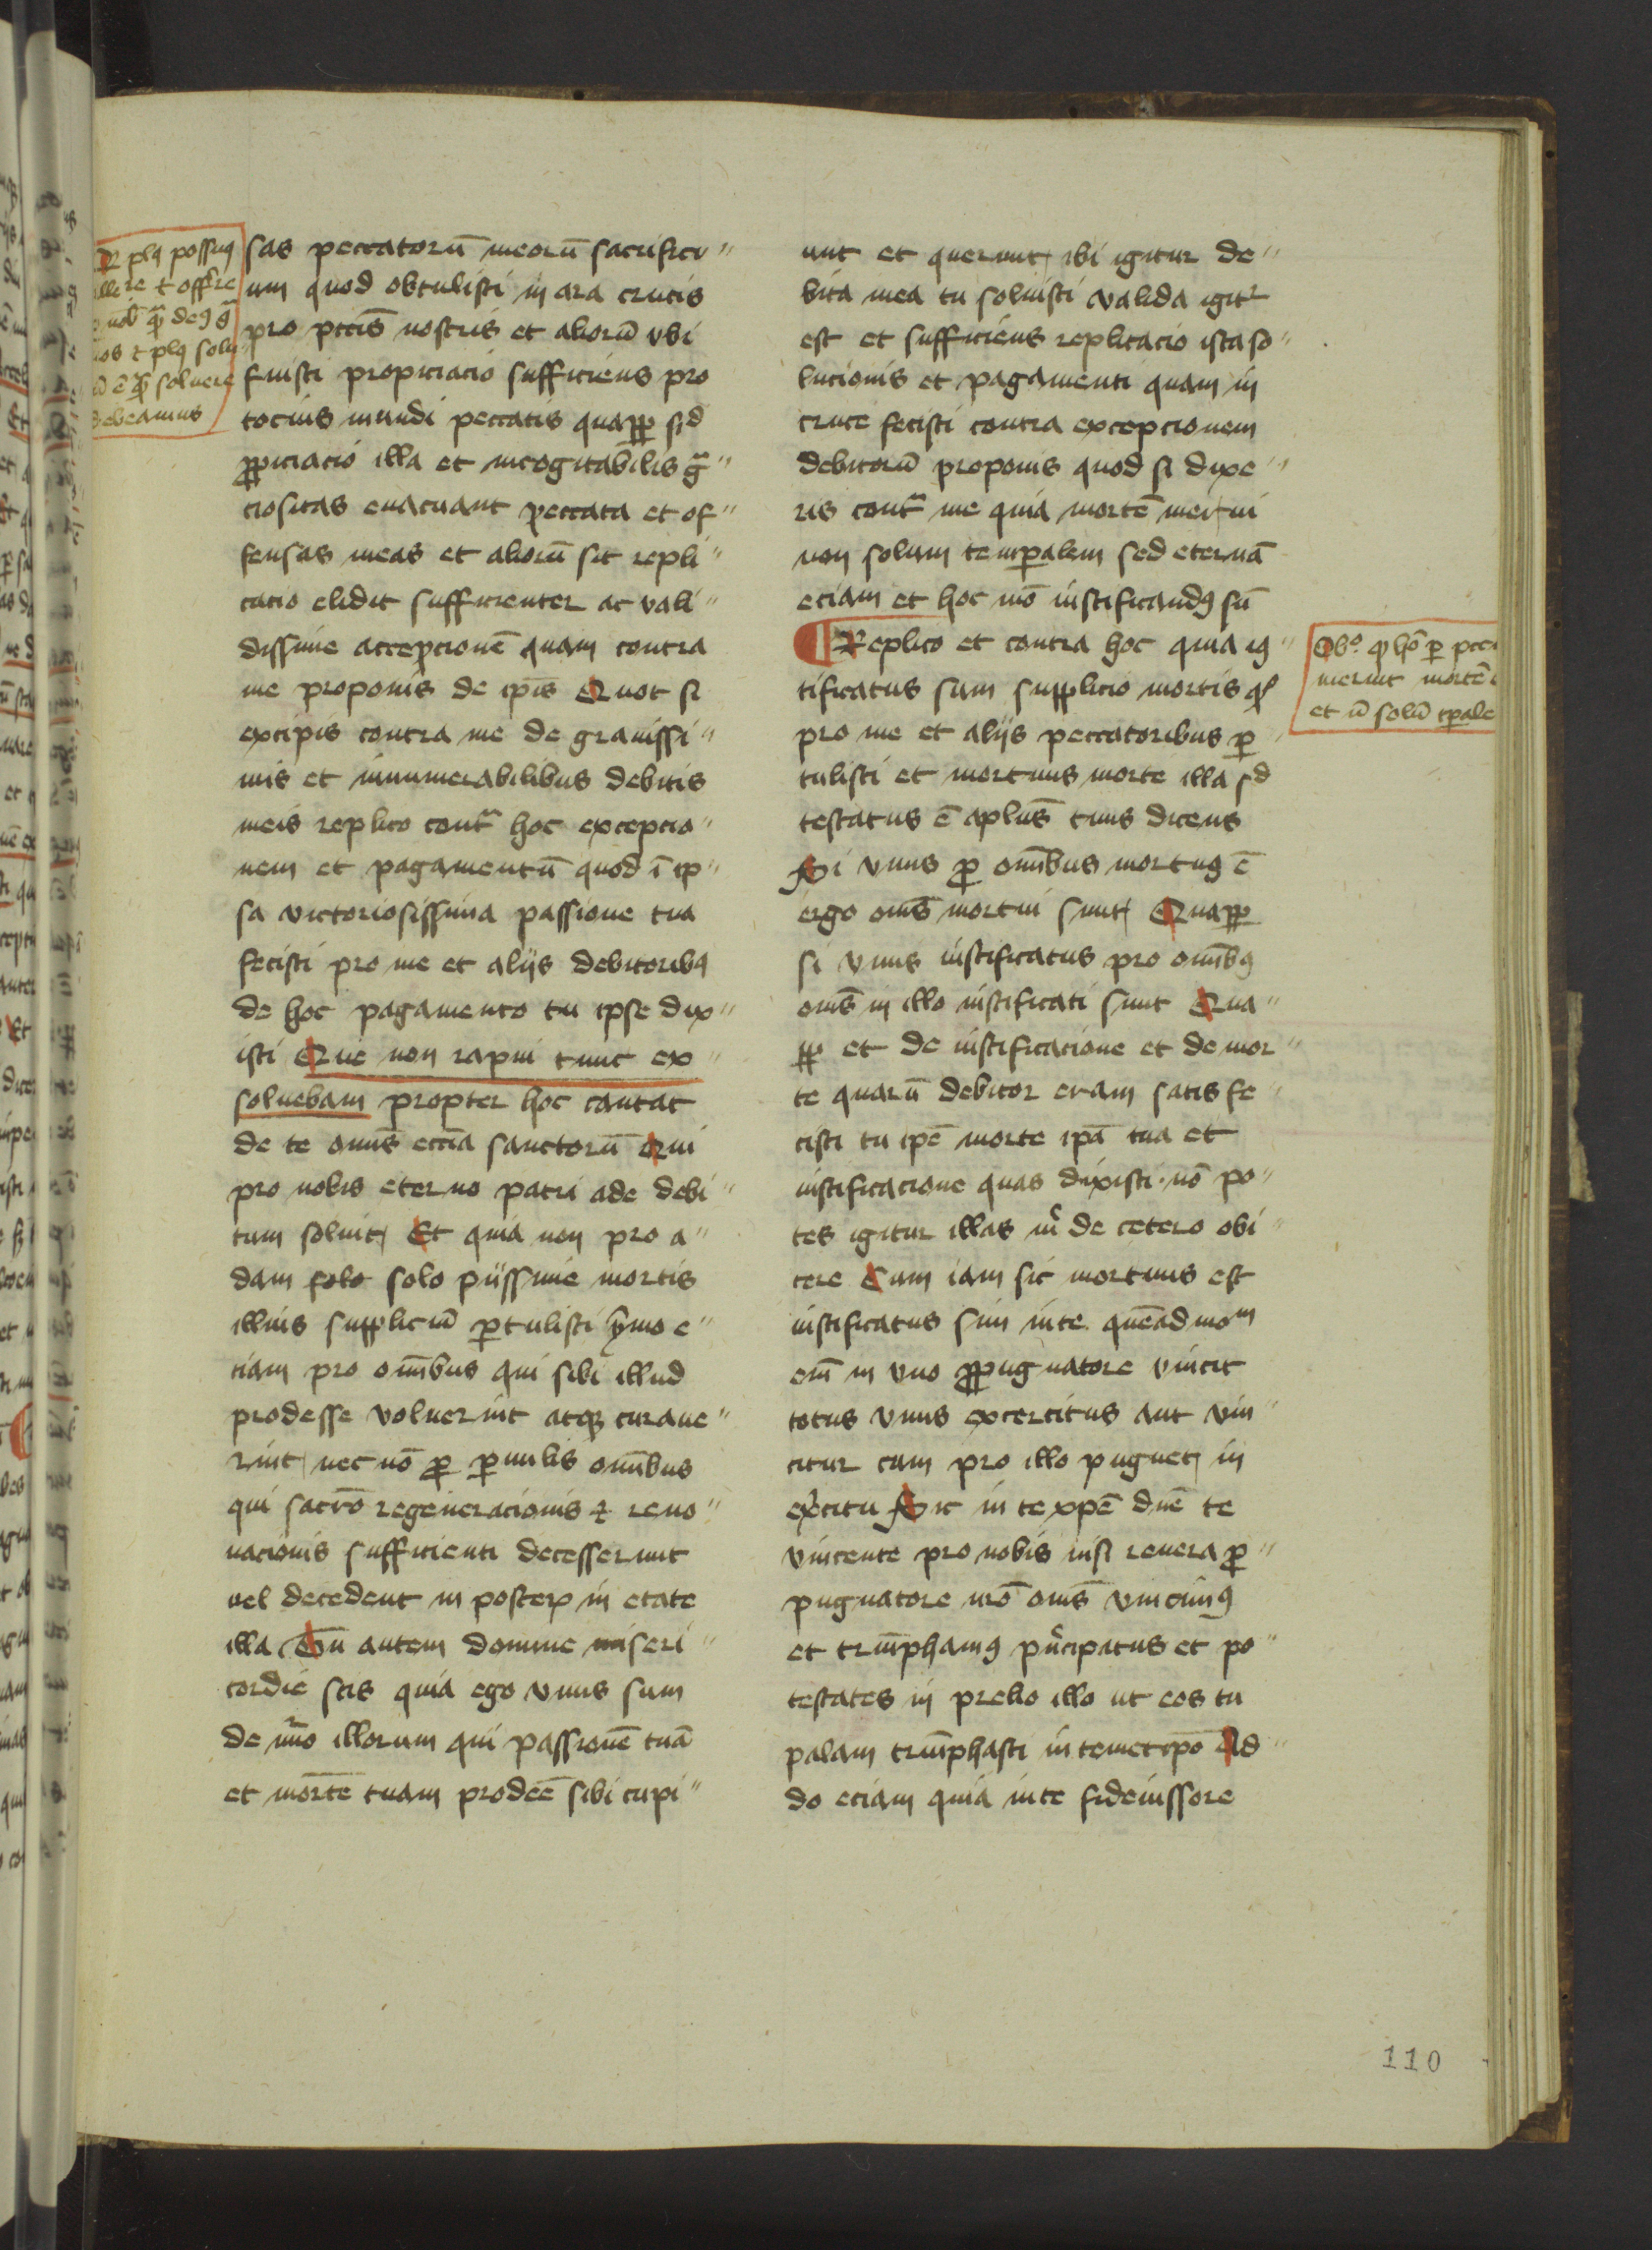 sas peccatorū meorū sacrifici〃
um quod obtulisti in ara crucis
pro pctis̄ nostris et aliorū vbi
fuisti propiciacio sufficiens pro
tocius mundi peccatis quapp̱ sid
ꝓpiciacio illa et incogitabilis gͣ〃
ciositas euacuant peccata et of〃
fensas meas et aliorū sit repli〃
cacio elidit sufficienter ac vali〃
dissime accepcionē quam contra
me proponis de ip̄is Quot si
excipis contra me de grauissi〃
mis et innumerabilibus debitis
meis replico contͣ hoc excepcio〃
nem et pagamentū quod ī ip〃
sa victoriosissima passione tua
fecisti pro me et alijs debitoribꝯ
de hoc pagamento tu ipse dix〃
isti Que non rapui tunc ex〃
soluebam propter hoc cantat
de te omīs ecc̄ia sanctorū Qui
pro nobis eterno patri ade debi〃
tum soluit Et quia non pro a〃
dam solo solo pijssime mortis
illius suppliciū ꝑtulisti ymo e〃
ciam pro om̄ibus qui sibi illud
prodesse voluerint atqꝫ curaue〃
rint nec nō ꝓ ꝑuulis om̄ibus
qui sacr̄o regeneracionis ⁊ reno〃
uacionis sufficienti decesserunt
uel decedent in posteꝝ in etate
illa Tu autem domine miseri〃
cordie scis quia ego vnus sum
de nūo illorum qui passionē tuā
et mortē tuam prodeē sibi cupi〃
unt et querunt ibi igitur de〃
bita mea tu soluisti valida igitr
est et sufficiens replicacio ista so〃
lucionis et pagamenti quam in
cruce fecisti contra excepcionem
debitorū proponis quod si dixe〃
ris contͣ me quia mortē merui
non solum temꝑalem sed eternā
eciam et hoc mō iustificandꝯ sū
¶ Replico et contra hoc quia iꝯ〃
tificatus sum supplicio mortis qd
pro me et alijs peccatoribus ꝑ〃
tulisti et mortuus morte illa sd
testatus ē aplūs tuus dicens
Si vnus ꝓ om̄ibus mortuꝯ ē
ergo om̄s mortui sunt Quapp̱
si vnus iustificatus pro om̄ibꝯ
om̄s in illo iustificati sunt Qua〃
pp̱ et de iustificacione et de mor〃
te quarū debitor eram satis fe〃
cisti tu ip̄e morte ip̄a tua et
iustificacione quas dixisti nō po〃
tes igitur illas m̊ de cetero obi〃
cere Cum iam sic mortuus est
iustificatus sim in te queādmom
em̄ in vno ꝓpugnatore vincit
totus vnus excercitus aut vin〃
citur cum pro illo pugnet in
excitu Sic in te xp̄e dn̄e te
vincente pro nobis nisi reuera ꝓ〃
pugnatore nr̄o om̄s vincimꝯ
et triūphamꝯ pͥncipatus et po〃
testates in prelio illo ut eos tu
palam triūphasti in temetip̄o Ad〃
do eciam quia in te fideiussore
plꝯ possuꝯ
re ⁊ offͬre
⁊ plꝯ solu
soluere
debeamus
Obo. qꝫ hō ꝑ pcc
meruit mortē
et nō solū tꝑale
110